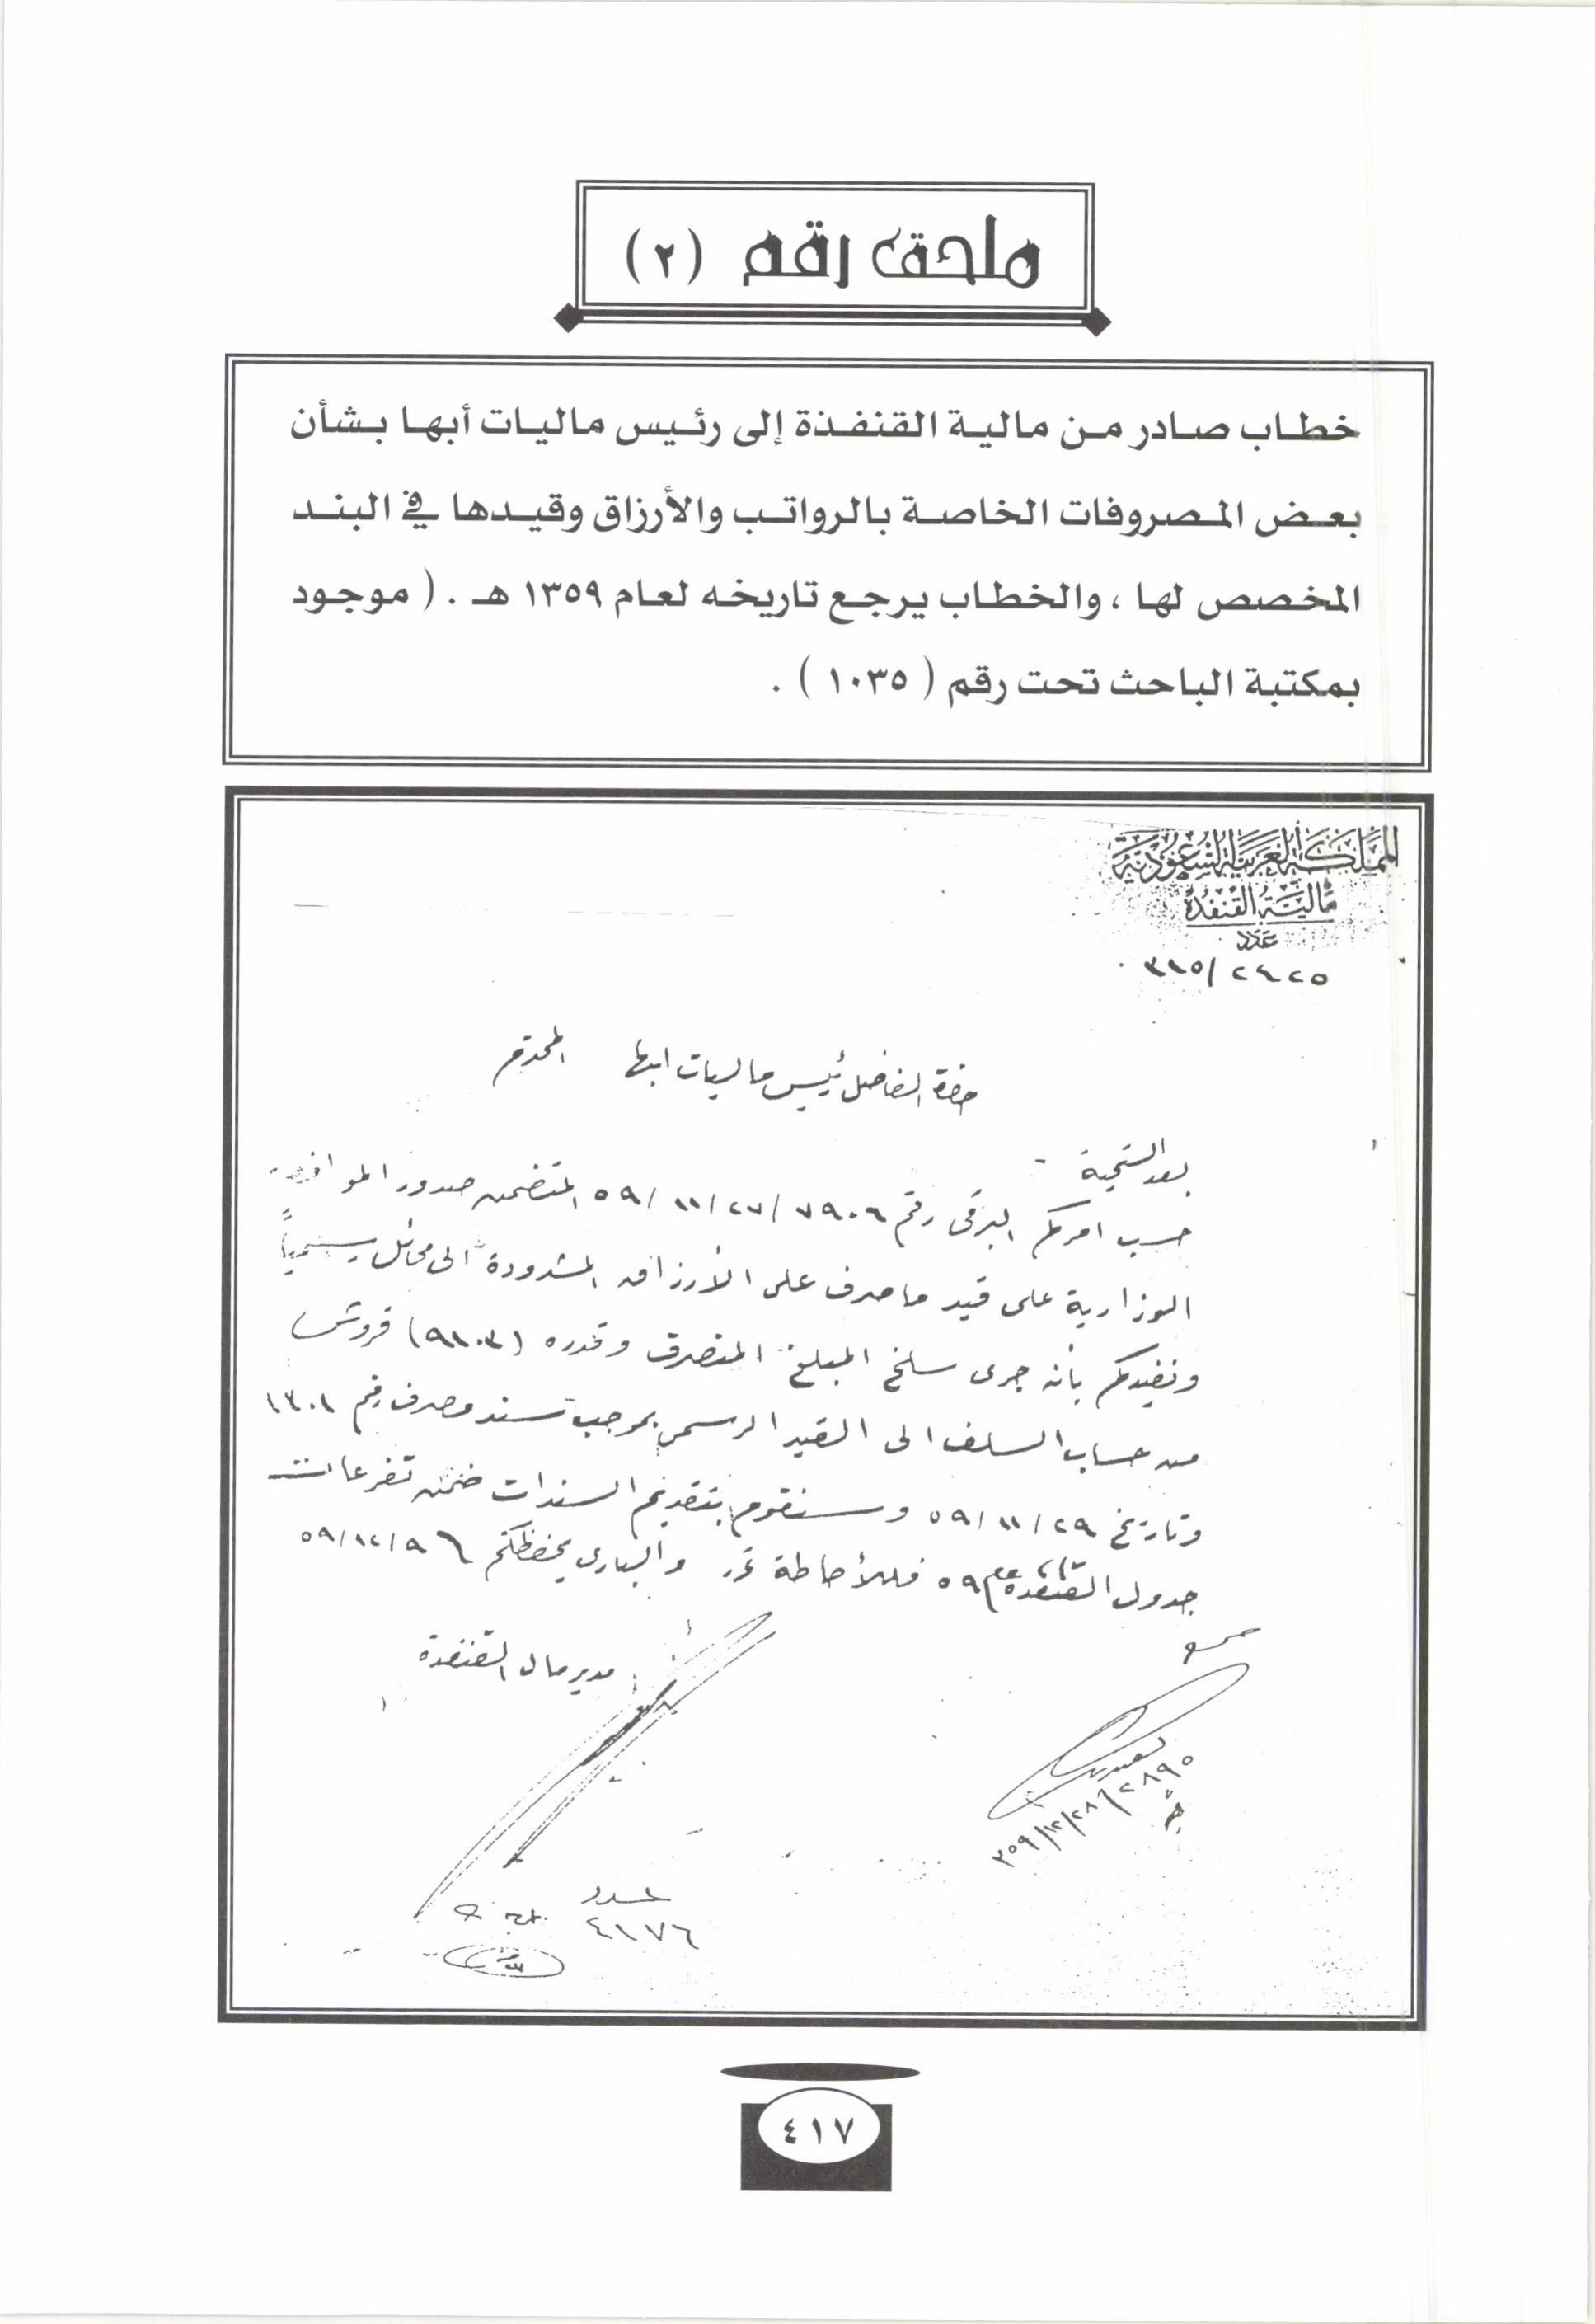 ملحق رقم (٢)
خطاب صادر من مالية القنفذة إلى رئيس ماليات أبها بشأن
بعض المصروفات الخاصة بالرواتب والأرزاق وقيدها في البند
المخصص لها ، والخطاب يرجع تاريخه لعام ١٣٥٩ هـ . ( موجود
بمكتبة الباحث تحت رقم ( ١٠٣٥ ) .
المملكة العربية السعودية
مالية القنفذة
عدد
حضرة الفاضل رئيس ماليات ابها المحترم
بعد التحية -
حسب امركم البرقي رقم ٧٩٠٦ / ٢٧ / ١١ / ٥٩ المتضمن صدور الموافقة
الوزارية على قيد ما صرف على الأرزاق المشدودة الى محائل رسمياً
ونفيدكم بأنه جرى سلخ المبلغ المنصرف وقدره (٩١٠٣) قروش
من حساب السلف الى القيد الرسمي بموجب سند مصرف رقم ١٣٠١
وتاريخ ٢٩ / ١١ / ٥٩ وسنقوم بتقديم السندات ضمن تفرعات
جدول القنفذة ٥٩ فللأحاطة حرر والباري يحفظكم ٩ / ١٢ / ٥٩
مدير مال القنفذة
٢٨٩٥
٣٥٩/١٢/٢٨
عدد
٤١٧٦
٤١٧